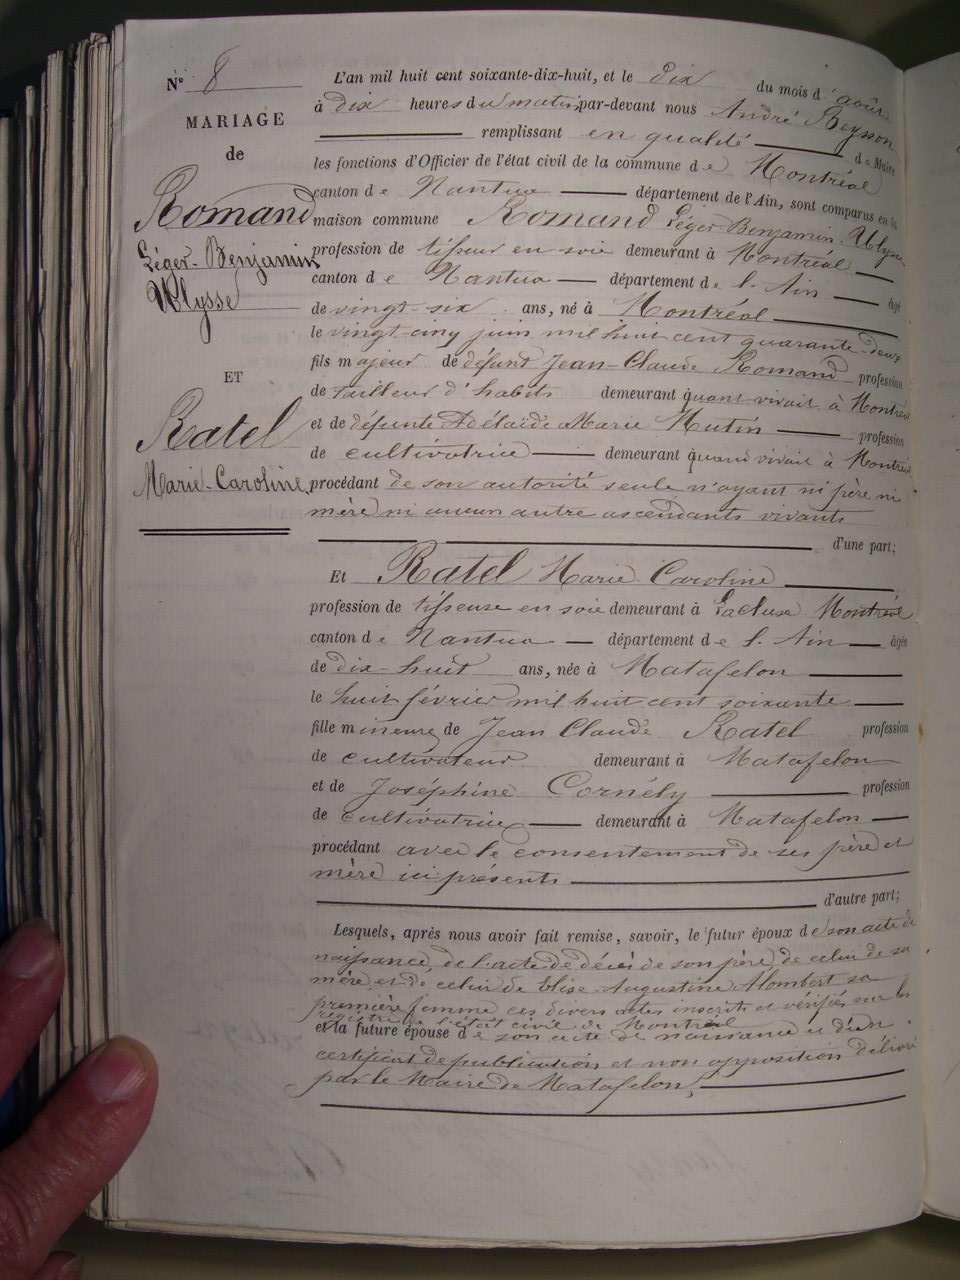 N° 8
MARIAGE
de
Romand
Léger-Benjamin
Ulysse
ET
Ratel
Marie-Caroline
L'an mil huit cent soixante-dix-huit, et le dix du mois d'août
à dix heures du matin par-devant nous André Reysson
remplissant en qualité de Maire
les fonctions d'Officier de l'état civil de la commune de Montréal
canton de Nantua département de l'Ain, sont comparus en la
maison commune Romand Léger-Benjamin-Ulysse
profession de tisseur en soie demeurant à Montréal
canton de Nantua département de l'Ain âgé
de vingt-six ans, né à Montréal
le vingt-cinq juin mil huit cent quarante-deux
fils majeur de défunt Jean-Claude Romand profession
de tailleur d'habits demeurant quant vivait à Montréal
et de défunte Adélaïde Marie Mutin profession
de cultivatrice demeurant quand vivait à Montréal
procédant de son autorité seule n'ayant ni père ni
mère ni aucun autre ascendants vivants
d'une part;
Et Ratel Marie Caroline
profession de tisseuse en soie demeurant à Lacluse Montréal
canton de Nantua département de l'Ain âgée
de dix-huit ans, née à Matafelon
le huit février mil huit cent soixante
fille mineure de Jean Claude Ratel profession
de cultivateur demeurant à Matafelon
et de Joséphine Cornély profession
de cultivatrice demeurant à Matafelon
procédant avec le consentement de ses père et
mère ici présents
d'autre part;
Lesquels, après nous avoir fait remise, savoir, le futur époux de son acte de
naissance, de l'acte de décès de son père, de celui de sa
mère et de celui de Elise-Augustine Alombert sa
première femme ces divers actes inscrits et vérifiés sur les
registres de l'état civil de Montréal
et la future épouse de son acte de naissance et d'un
certificat de publication et non opposition délivré
par le Maire de Matafelon,